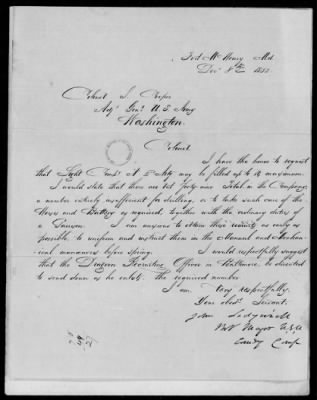 Fort McHenry Md
Decr 8th 1852.
Colonel S. Cooper
Adjt Genl U. S. Army
Washington.
Colonel
I have the honor to request
that Light Compy 2d Arty may be filled up to its maximum.
I would state that there are but forty nine total in the Company
a number entirely insufficient for drilling, or to take such care of the
Horses and Battery as required, together with the ordinary duties of
a Garrison. I am anxious to obtain these recruits as early as
possible, to uniform and instruct them in the Manual and Mechan-
ical maneuvres before spring. I would respectfully suggest
that the Dragoon Recruiting Officer in Baltimore, be directed
to send down as he enlists. The required number
I am Very respectfully,
Your obdt. Servant.
John Sedgwick
Bvt Major U.S.A
Comdg Comp